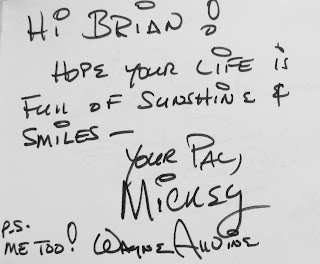 Hi BRiAN!
HOPE YOUR LiFE is
FULL OF SUNSHiNE &
SMiLES —
YOUR PAL,
MiCKEY
P.S.
ME TOO! WAYNE ALLWiNE